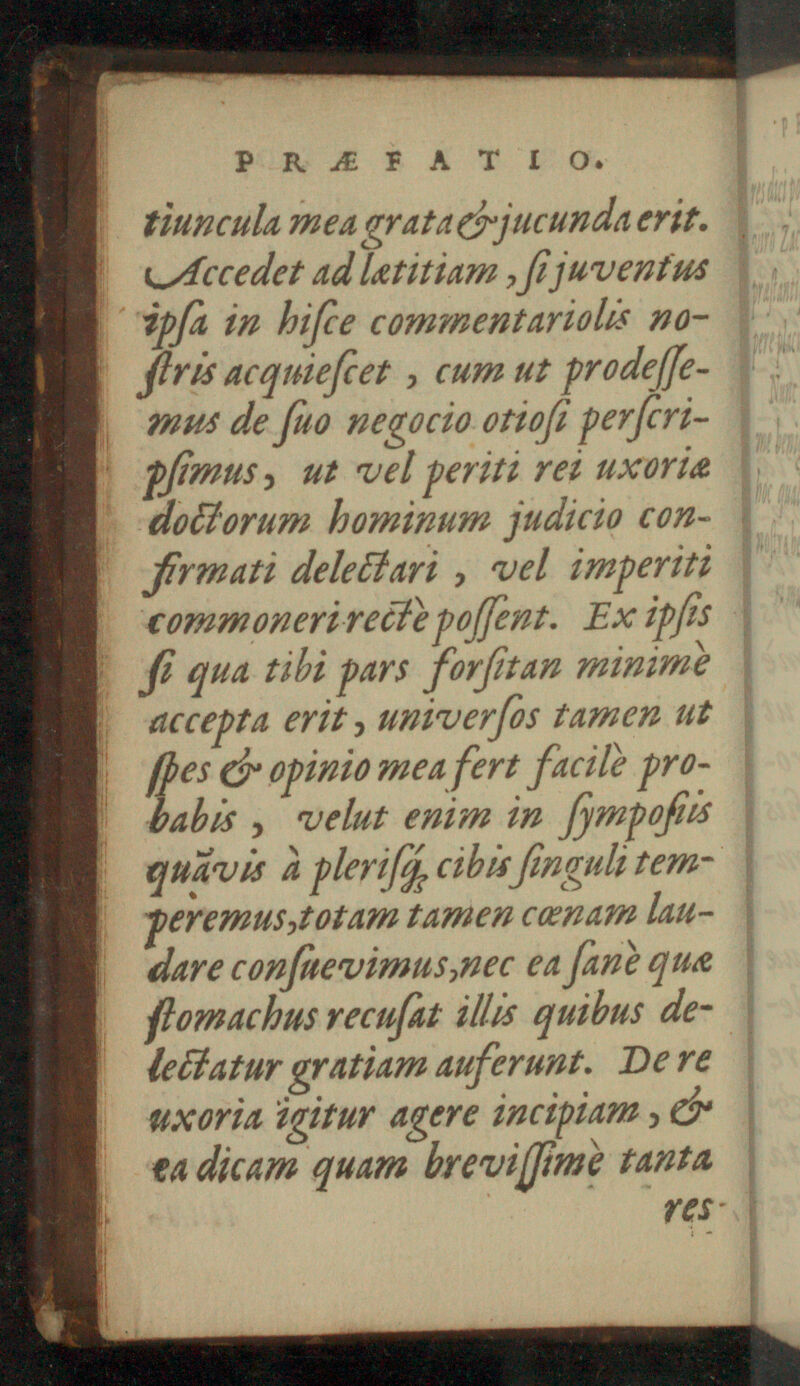 PRÆFATIO.
tiuncula mea grata & jucunda erit.
Accedet ad lætitiam, ſi juventus
ipſa in hiſce commentariolis no-
ſtris acquieſcet, cum ut prodeſſe-
mus de ſuo negocio otioſi perſcri-
pſimus, ut vel periti rei uxoriæ
doctorum hominum judicio con-
firmati delectari, vel imperiti
commoneri rectè poſſent. Ex ipſis
ſi qua tibi pars forſitan minimè
accepta erit, univerſos tamen ut
ſpes & opinio mea fert facilè pro-
babis, velut enim in ſympoſiis
quāvis à pleriſq; cibis ſinguli tem-
peremus, totam tamen cœnam lau-
dare conſuevimus, nec ea ſanè quæ
ſtomachus recuſat illis quibus de-
lectatur gratiam auferunt. De re
uxoria igitur agere incipiam, &
ea dicam quam breviſſimè tanta
res